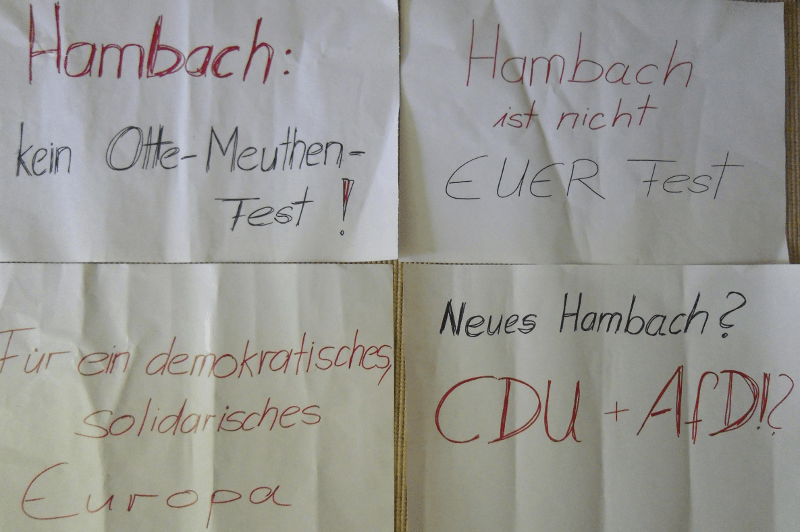 Hambach:
kein Otte-Meuthen-
Fest!
Hambach
ist nicht
EUER Fest
Für ein demokratisches,
solidarisches
Europa
Neues Hambach?
CDU + AfD!?